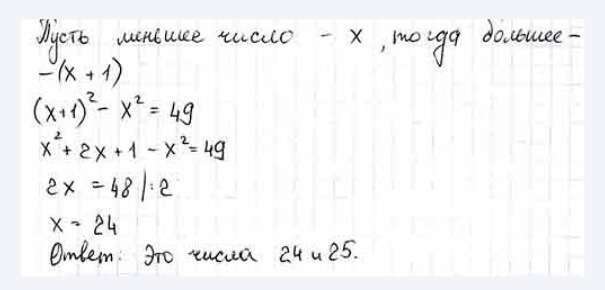 Пусть меньшее число - x, тогда большее -
- (x + 1)
(x+1)² - x² = 49
x² + 2x + 1 - x² = 49
2x = 48 |:2
x = 24
Ответ: Это числа 24 и 25.